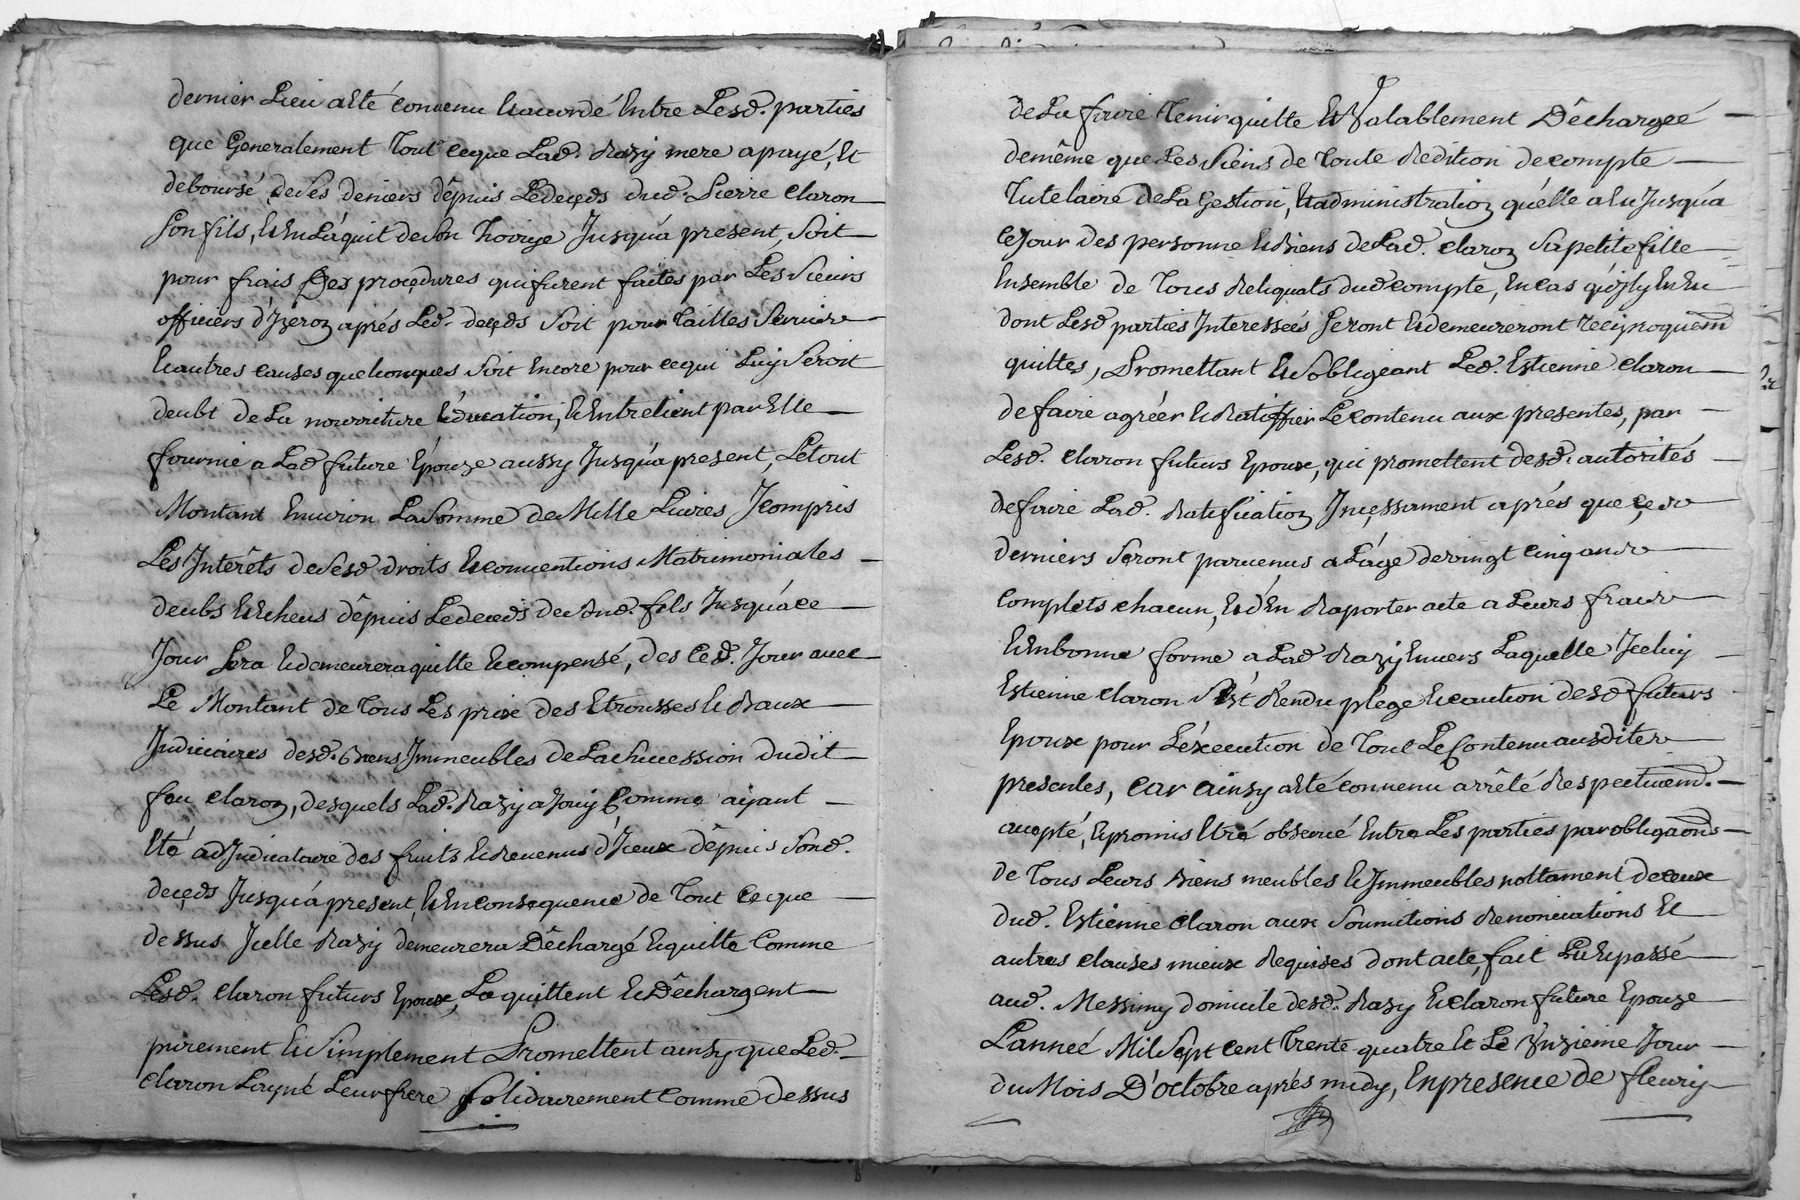 dernier Lieu a Eté convenu Et acordé Entre Lesd. parties
que Generalement Tout ce que Lad. Razy mere a payé, Et
deboursé de Ses deniers dêpuis Le decęds dud. Pierre Claron
Son fils, Et En L'áquit de Son hoirye Jusqu'á present, Soit
pour frais Des proçedures qui furent faites par Les Sieurs
officiers d'Yzeron aprés Led. decęds Soit pour Tailles Servis
Et autres causes quelconques Soit Encore pour ce qui Luy Seroit
deubt de La nourriture Education, Et Entretient par Elle
fournie a Lad future Epouze aussy Jusqu'a present, Le tout
Montant Environ La Somme de Mille Livres Jcompris
Les Intérêts de Sesd droits Et conventions Matrimoniales
deubs Et Echeus dêpuis Le decęds de Sond. fils Jusqu'á ce
Jour Sera Et demeurera quitte Et compensé, des Ced. Jour avec
Le Montant de Tous Les prix des Etrousses Et Baux
Judiciaires desd. Biens Jmmeubles de La Succession dudit
feu Claron, desquels Lad. Razy a Jouÿ Comme aÿant
Eté adJudicataire des fruits Et Revenus d'Jceux dêpuis Sond.
decęds Jusqu'á present, Et En consequence de Tout Ce que
dessus Jcelle Razy demeurera Dêchargé Et quitte Comme
Lesd. Claron futurs Epoux, La quittent Et Dêchargent
purement Et Simplement Promettent ainsy que Led.
Claron Layné Leur frere Solidairement Comme Dessus
de La faire Tenir quitte Et Valablement Dêchargeé
de même que Les Siens de Toute Redition de compte
Tutelaire de La Gestion, Et administration qu'élle a Eu Jusqu'á
Ce Jour des personne Et Biens de Lad. Claron Sa petite fille
Ensemble de Tous Reliquats dud compte, En cas qu'il y En Eu
dont Lesd parties Jnteresseés Seront Et demeureront reciproquemt
quittes, Promettant Et S'obligeant Led. Estienne Claron
de faire agréer Et Ratiffier Le contenu aux presentes, par
Lesd. Claron futurs Epoux, qui promettent desd. autorités
de faire Lad. Ratification Jncęssament aprés que ces
derniers Seront parvenus a L'áge de vingt cinq ans
Complets chacun, Et d'En Raporter acte a Leurs frais
Et En bonne forme a Lad Razy Envers Laquelle Jceluy
Estienne Claron S'est Rendu plege Et caution desd futurs
Epoux pour L'éxecution de Tout Le Contenu ausdites
presentes, Car Ainsy a Eté convenu arrêté Respectivemt.
accepté, Et promis Etre observé Entre Les parties par obligaons
de Tous Leurs Biens meubles Et Jmmeubles nottament de ceux
dud. Estienne Claron aux Soumitions Renonciations Et
autres clauses mieux Requises dont acte, fait Lu Et passé
aud. Messimy domicile desd. Razy Et Claron future Epouze
L'anneé Mil Sept Cent Trente quatre Et Le Jour
du Mois D'octobre aprés midy, En presence de fleury